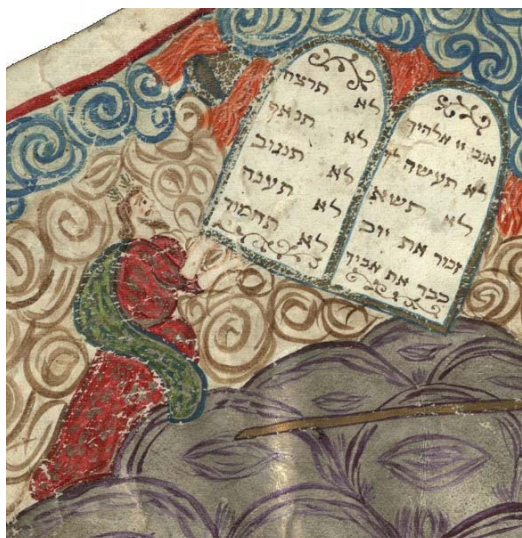 אנכי יי אלהיך
לא תעשה לך
לא תשא
זכור את יום
כבד את אביך
לא תרצח
לא תנאף
לא תגנוב
לא תענה
לא תחמוד